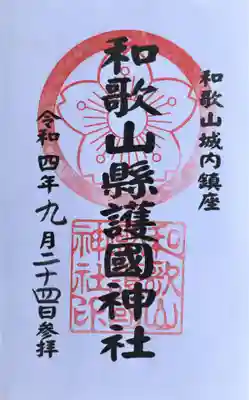 和歌山城内鎮座
和歌山縣護國神社
令和四年九月二十四日参拝
和歌山
神社印